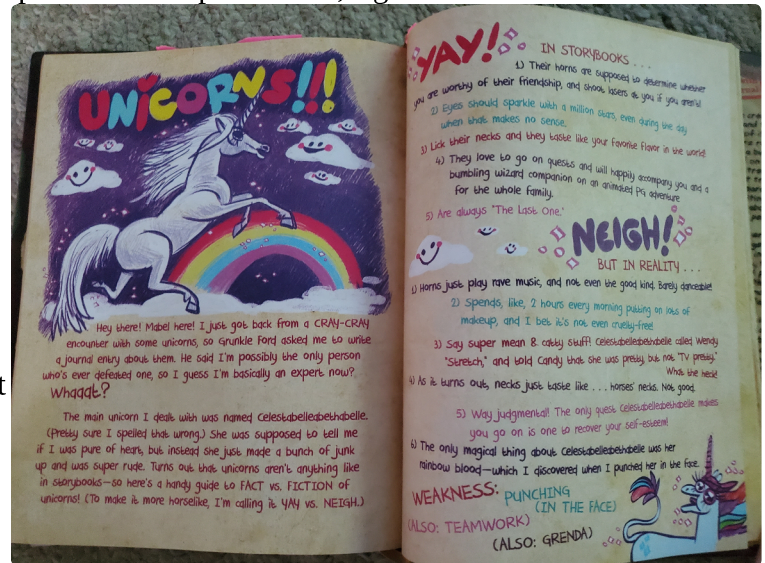 UNICORNS!!!
Hey there! Mabel here! I just got back from a CRAY-CRAY
encounter with some unicorns, so Grunkle Ford asked me to write
a journal entry about them. He said I'm possibly the only person
who's ever defeated one, so I guess I'm basically an expert now?
Whaaat?
The main unicorn I dealt with was named Celestabelleabethabelle.
(Pretty sure I spelled that wrong.) She was supposed to tell me
if I was pure of heart, but instead she just made a bunch of junk
up and was super rude. Turns out that unicorns aren't anything like
in storybooks—so here's a handy guide to FACT vs. FICTION of
unicorns! (To make it more horselike, I'm calling it YAY vs. NEIGH.)
YAY!
IN STORYBOOKS . . .
1) Their horns are supposed to determine whether
you are worthy of their friendship, and shoot lasers at you if you aren't!
2) Eyes should sparkle with a million stars, even during the day
when that makes no sense.
3) Lick their necks and they taste like your favorite flavor in the world!
4) They love to go on quests and will happily accompany you and a
bumbling wizard companion on an animated PG adventure
for the whole family.
5) Are always "The Last One."
NEIGH!
BUT IN REALITY . . .
1) Horns just play rave music, and not even the good kind. Barely danceable!
2) Spends, like, 2 hours every morning putting on lots of
makeup, and I bet it's not even cruelty-free!
3) Say super mean & catty stuff! Celestabelleabethabelle called Wendy
"Stretch," and told Candy that she was pretty, but not "TV pretty."
What the heck!
4) As it turns out, necks just taste like . . . horses' necks. Not good.
5) Way judgmental! The only quest Celestabelleabethabelle makes
you go on is one to recover your self-esteem!
6) The only magical thing about Celestabelleabethabelle was her
rainbow blood—which I discovered when I punched her in the face.
WEAKNESS: PUNCHING
(IN THE FACE)
(ALSO: TEAMWORK)
(ALSO: GRENDA)